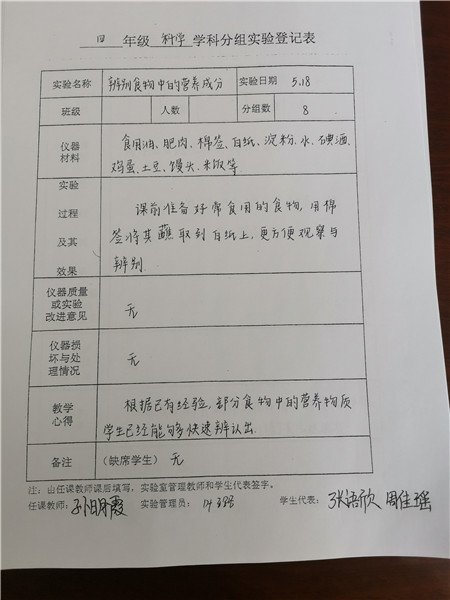 四 年级 科学 学科分组实验登记表
实验名称 辨别食物中的营养成分 实验日期 5.18
班级 人数 分组数 8
仪器 食用油、肥肉、棉签、白纸、淀粉、水、碘酒、
材料 鸡蛋、土豆、馒头、米饭等
实验 过程 及其 效果
课前准备好常食用的食物,用棉
签将其蘸取到白纸上,更方便观察与
辨别.
仪器质量
或实验 无
改进意见
仪器损
坏与处 无
理情况
教学 根据已有经验,部分食物中的营养物质
心得 学生已经能够快速辨认出.
备注 (缺席学生) 无
注:由任课教师课后填写,实验室管理教师和学生代表签字。
任课教师: 孙明霞 实验管理员: 学生代表: 张语欣 周佳瑶